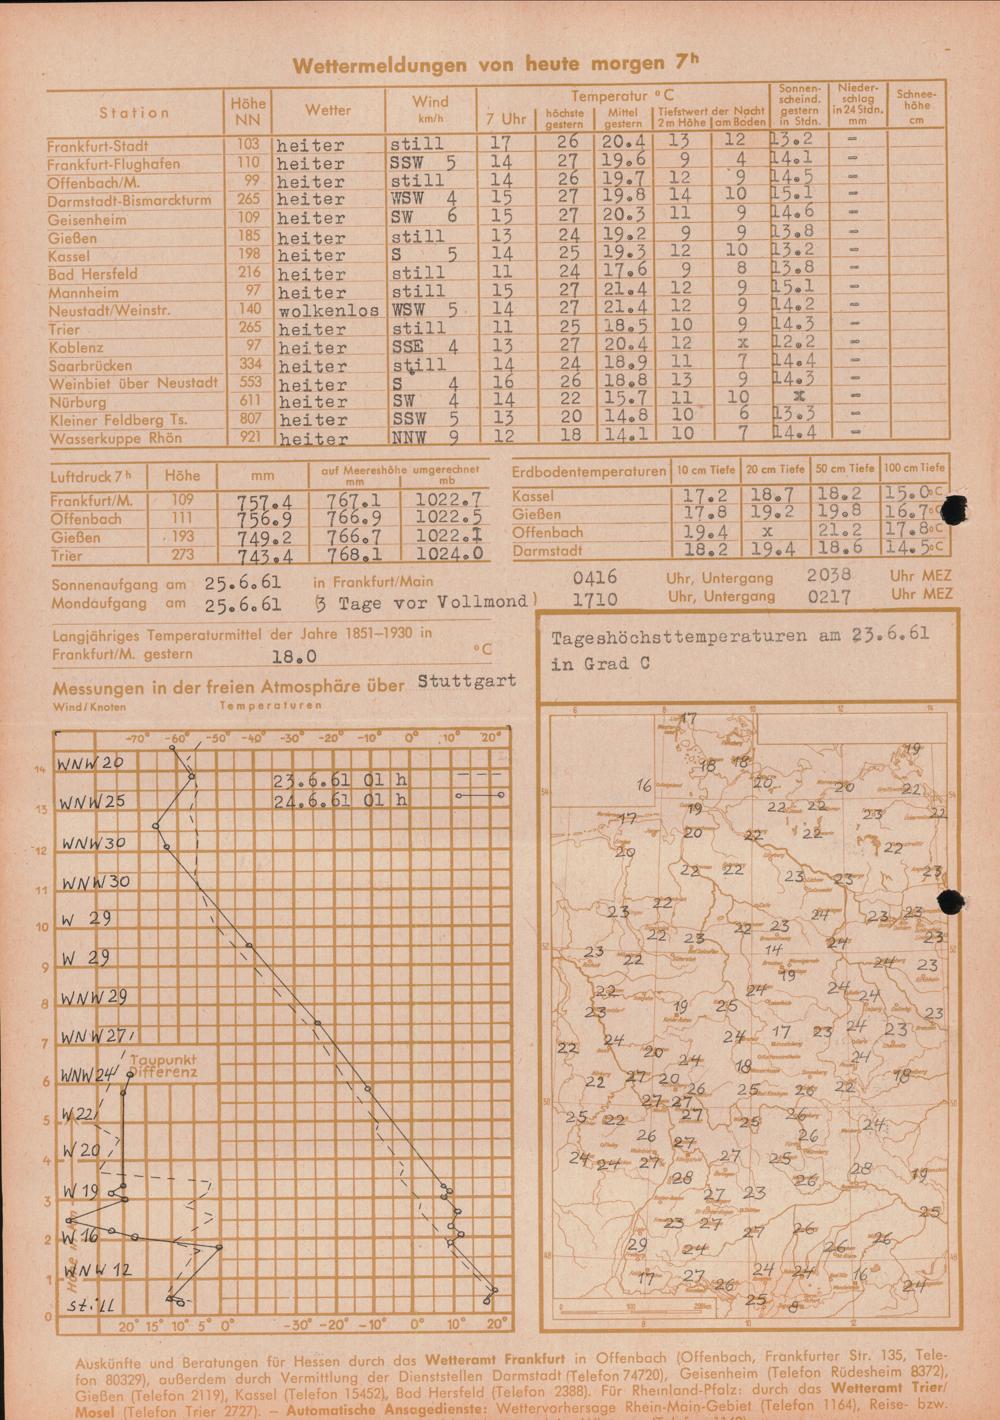 Wettermeldungen von heute morgen 7h
Station Höhe NN Wetter Wind km/h Temperatur °C Sonnenscheind. gestern in Stdn. Niederschlag in 24 Stdn. mm Schneehöhe cm
7 Uhr höchste gestern Mittel gestern Tiefstwert der Nacht 2m Höhe am Boden
Frankfurt-Stadt 103 heiter still 17 26 20.4 13 12 13.2 -
Frankfurt-Flughafen 110 heiter SSW 5 14 27 19.6 9 4 14.1 -
Offenbach/M. 99 heiter still 14 26 19.7 12 9 14.5 -
Darmstadt-Bismarckturm 265 heiter WSW 4 15 27 19.8 14 10 15.1 -
Geisenheim 109 heiter SW 6 15 27 20.3 11 9 14.6 -
Gießen 185 heiter still 13 24 19.2 9 9 13.8 -
Kassel 198 heiter S 5 14 25 19.3 12 10 13.2 -
Bad Hersfeld 216 heiter still 11 24 17.6 9 8 13.8 -
Mannheim 97 heiter still 15 27 21.4 12 9 15.1 -
Neustadt/Weinstr. 140 wolkenlos WSW 5 14 27 21.4 12 9 14.2 -
Trier 265 heiter still 11 25 18.5 10 9 14.3 -
Koblenz 97 heiter SSE 4 13 27 20.4 12 x 12.2 -
Saarbrücken 334 heiter still 14 24 18.9 11 7 14.4 -
Weinbiet über Neustadt 553 heiter S 4 16 26 18.8 13 9 14.3 -
Nürburg 611 heiter SW 4 14 22 15.7 11 10 x -
Kleiner Feldberg Ts. 807 heiter SSW 5 13 20 14.8 10 6 13.3 -
Wasserkuppe Rhön 921 heiter NNW 9 12 18 14.1 10 7 14.4 -
Luftdruck 7h Höhe mm auf Meereshöhe umgerechnet mm mb
Frankfurt/M. 109 757.4 767.1 1022.7
Offenbach 111 756.9 766.9 1022.5
Gießen 193 749.2 766.7 1022.1
Trier 273 743.4 768.1 1024.0
Erdbodentemperaturen 10 cm Tiefe 20 cm Tiefe 50 cm Tiefe 100 cm Tiefe
Kassel 17.2 18.7 18.2 15.0°C
Gießen 17.8 19.2 19.8 16.7°C
Offenbach 19.4 x 21.2 17.8°C
Darmstadt 18.2 19.4 18.6 14.5°C
Sonnenaufgang am 25.6.61 in Frankfurt/Main 0416 Uhr, Untergang 2038 Uhr MEZ
Mondaufgang am 25.6.61 (3 Tage vor Vollmond) 1710 Uhr, Untergang 0217 Uhr MEZ
Langjähriges Temperaturmittel der Jahre 1851–1930 in
Frankfurt/M. gestern 18.0 °C
Messungen in der freien Atmosphäre über Stuttgart
Wind/Knoten Temperaturen
-70° -60° -50° -40° -30° -20° 0° 10° 20°
WNW 20
14
23.6.61 01 h
WNW 25
24.6.61 01 h
13
WNW 30
12
WNW 30
11
W 29
10
W 29
9
WNW 29
8
WNW 27
7
Taupunkt
Differenz
WNW 24
6
W 22
5
W 20
4
W 19
3
W 16
2
WNW 12
1
still
0
20° 15° 10° 5° 0° -30° -20° -10° 0° 10° 20°
Tageshöchsttemperaturen am 23.6.61
in Grad C
6 8 10 12 14
17
19
18 18
16 20 20 22
19 22 22
17 23 22
20 22 22
20 22
22 22 23 23 23
23 22 24 23 23
22 23 22 23 24 23
23 22 14 24 23
19
22 24 24 24
23 19 25 23
24 24 17 23 24 23
22 20 24 18 24
22 27 20 26 25 26 22 18
27 27
25 22 27 25 26 24
26 27 26
24 24 27 27 25 28
28 26 19
27 23
23 27 27 26 25
29 24 26 26
17 27 26 24 24 16 24
25
8 10 12
Auskünfte und Beratungen für Hessen durch das Wetteramt Frankfurt in Offenbach (Offenbach, Frankfurter Str. 135, Tele-
fon 80329), außerdem durch Vermittlung der Dienststellen Darmstadt (Telefon 74720), Geisenheim (Telefon Rüdesheim 8372),
Gießen (Telefon 2119), Kassel (Telefon 15452), Bad Hersfeld (Telefon 2388). Für Rheinland-Pfalz: durch das Wetteramt Trier/
Mosel (Telefon Trier 2727). – Automatische Ansagedienste: Wettervorhersage Rhein-Main-Gebiet (Telefon 1164), Reise- bzw.